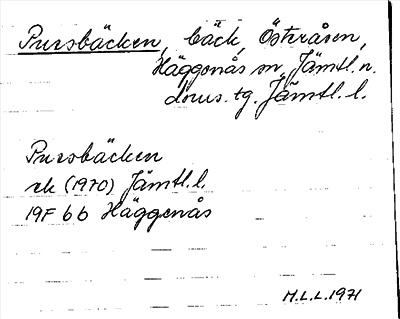 Pursbäcken, bäck, Österåsen,
Häggenås sn, Jämtl. n.
doms. tg. Jämtl. l.
Pursbäcken
rk (1970) Jämtl. l.
19F 6b Häggenås
M.L.L. 1971